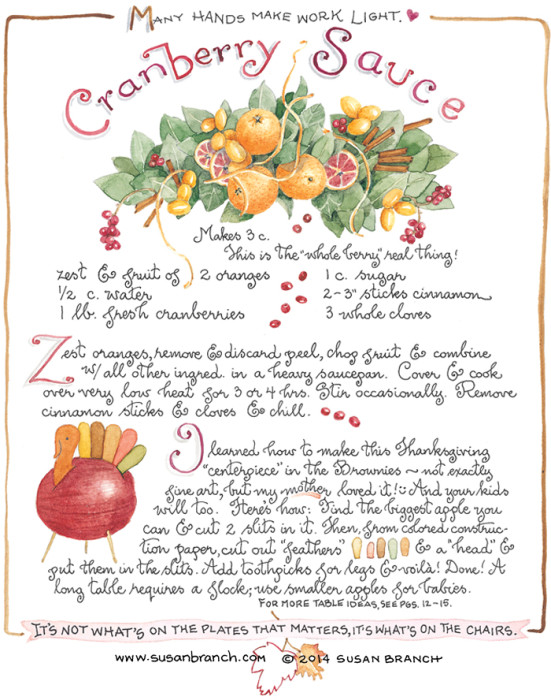 MANY HANDS MAKE WORK LIGHT.
Cranberry Sauce
Makes 3 c.
This is the "whole berry" real thing!
zest & fruit of 2 oranges
½ c. water
1 lb. fresh cranberries
1 c. sugar
2-3" sticks cinnamon
3 whole cloves
Zest oranges, remove & discard peel, chop fruit & combine
w/ all other ingred. in a heavy saucepan. Cover & cook
over very low heat for 3 or 4 hrs. Stir occasionally. Remove
cinnamon sticks & cloves & chill.
I learned how to make this Thanksgiving
"centerpiece" in the Brownies ~ not exactly
fine art, but my mother loved it! And your kids
will too. Here's how: Find the biggest apple you
can & cut 2 slits in it. Then, from colored construc-
tion paper, cut out "feathers" & a "head" &
put them in the slits. Add toothpicks for legs & voilà! Done! A
long table requires a flock; use smaller apples for babies.
FOR MORE TABLE IDEAS, SEE PGS. 12-15.
IT'S NOT WHAT'S ON THE PLATES THAT MATTERS, IT'S WHAT'S ON THE CHAIRS.
www.susanbranch.com © 2014 SUSAN BRANCH